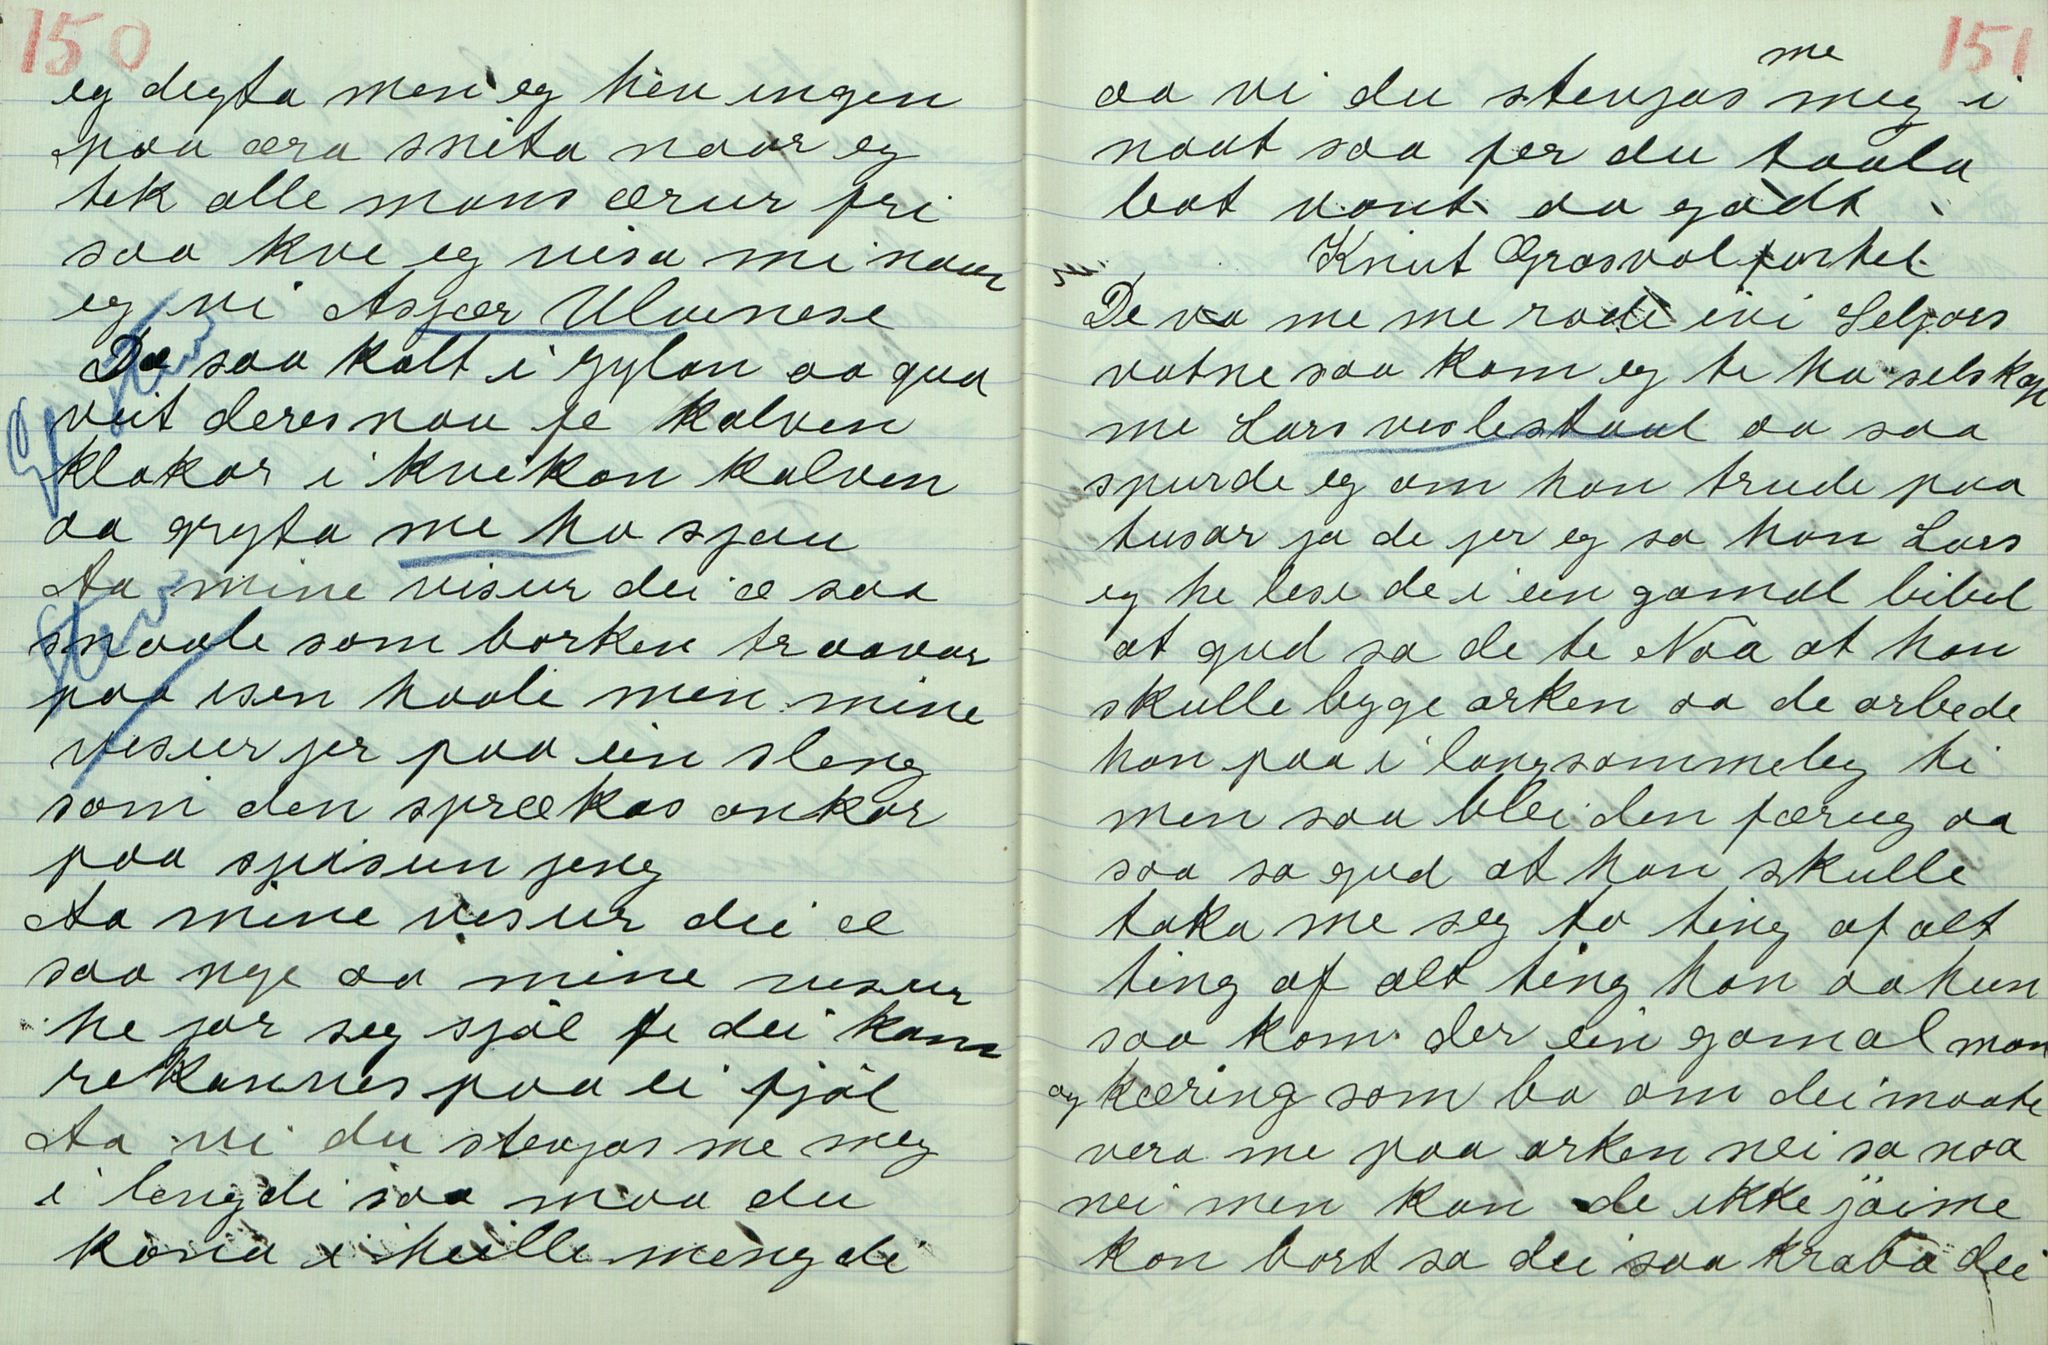 150
eg degta men eg hev ingen
paa æra snita naar eg
tek alle mans ærur fri
saa kve eg visa mi naar
eg vi Asjær Ulvenese
Dæ saa kalt i gylon aa gud
veit deres naa fe kalven
klakar i kvikon kalven
aa gryta me ha sjau
Aa mine visur dei æ saa
snaale som borken traavar
paa isen haale men mine
visur jer paa ein sleng
som den sprækas ankar
paa spisun jeng
Aa mine visur dei æ
saa nye aa mine visur
he jar seg sjøl fe dei kann
rekannes paa ei fjøl
Aa vi du stevjas me meg
i lengdi saa maa du
koma i heille mengdi
151
me
aa vi du stevjas meg i
naat saa fer du taala
bot vont aa gødt
Knut Græsvol fortel
De va me me rode ivi Seljors
vatne saa kom eg te ha selskap
me Lars veslestaul aa saa
spurde eg om han trude paa
tusar ja de jer eg sa han Lars
eg he lese de i ein gamal bibel
at gud sa de te Noa at han
skulle byge arken aa de arbede
han paa i langsommeleg ti
men saa blei den færug aa
saa sa gud at han skulle
taka me seg to ting af alt
ting af alt ting han aa hun
saa kom der ein gamal man
og kæring som ba om dei maate
vera me paa arken nei sa noa
nei men kan de ikke jøime
kon bort sa dei saa kraba dei